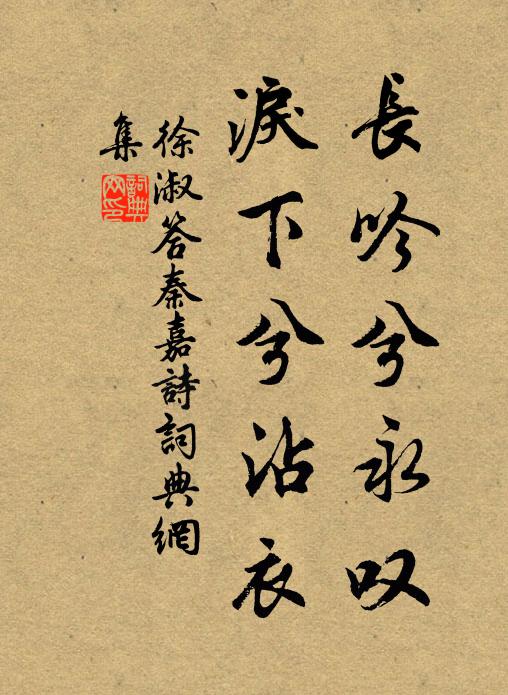 長吟兮永叹
淚下兮沾衣
徐淑答秦嘉詩詞典網
集
詞典網印